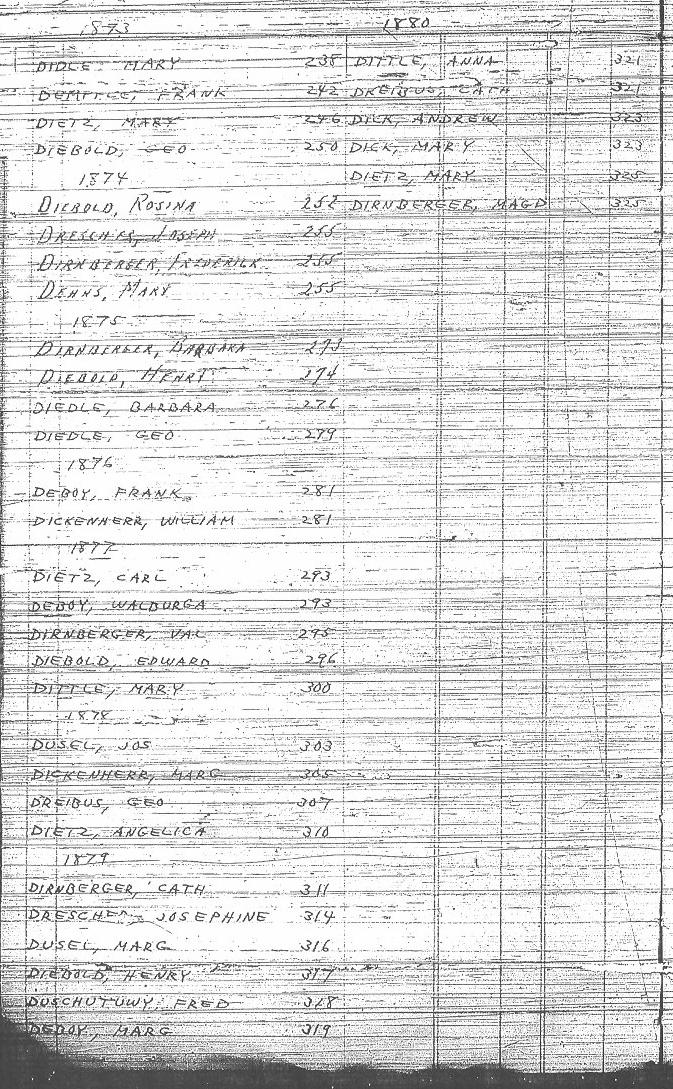 1873
DIDLE MARY 238
DEMPTLE, FRANK 242
DIETZ, MARY 246
DIEBOLD, GEO 250
1874
DIEBOLD, ROSINA 252
DRESCHER, JOSEPH 255
DIRNBERGER, FREDERICK 255
DEHNS, MARY 255
1875
DIRNBERGER, BARBARA 273
DIEBOLD, HENRY 274
DIEDLE, BARBARA 276
DIEDLE, GEO 279
1876
DEBOY, FRANK 281
DICKENHERR, WILLIAM 281
1877
DIETZ, CARL 293
DEBOY, WALBURGA 293
DIRNBERGER, VAL 295
DIEBOLD, EDWARD 296
DITTLE, MARY 300
1878
DUSEL, JOS 303
DICKENHERR, MARG 305
DREIBUS, GEO 307
DIETZ, ANGELICA 310
1879
DIRNBERGER, CATH 311
DRESCHER, JOSEPHINE 314
DUSEL, MARG 316
DIEBOLD, HENRY 317
DUSCHUTUWY, FRED 318
DEBOY, MARG 319
1880
DITTLE, ANNA 321
DREIBUS, CATH 321
DICK, ANDREW 323
DICK, MARY 323
DIETZ, MARY 325
DIRNBERGER, MAGD 325